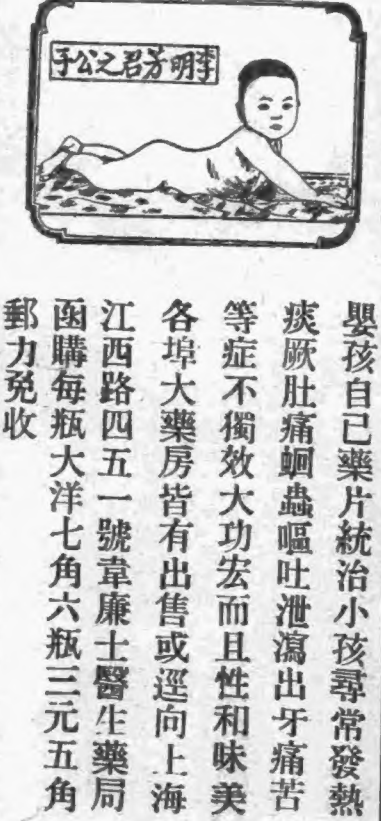 李明芳君之公子
嬰孩自己藥片統治小孩尋常發熱
痰厥肚痛蛔蟲嘔吐泄瀉出牙痛苦
等症不獨效大功宏而且性和味美
各埠大藥房皆有出售或逕向上海
江西路四五一號韋廉士醫生藥局
函購每瓶大洋七角六瓶三元五角
郵力免收